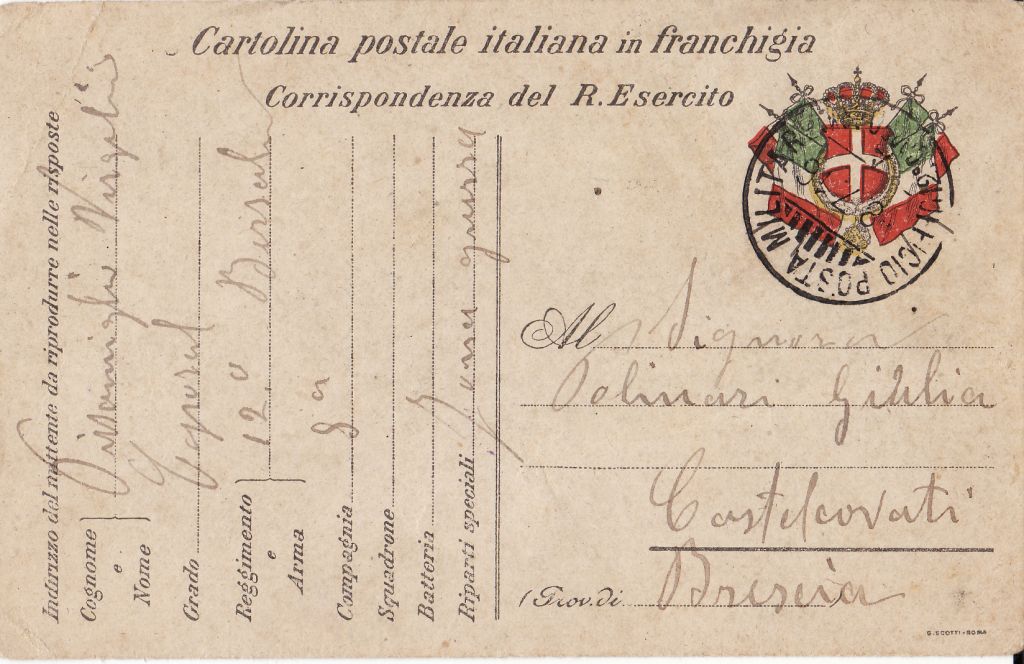 Cartolina postale italiana in franchigia
Corrispondenza del R. Esercito
Indirizzo del mittente da riprodurre nelle risposte
Cognome e Nome
Virgilio
Grado Caporal
Reggimento e Arma 12.o Bersal
Compagnia 8a
Squadrone
Batteria
Riparti speciali Zona guerra
POSTA MILITARE
Al Signora
Polinari Giulia
Castelcovati
(Prov. di Brescia)
G. SCOTTI - ROMA